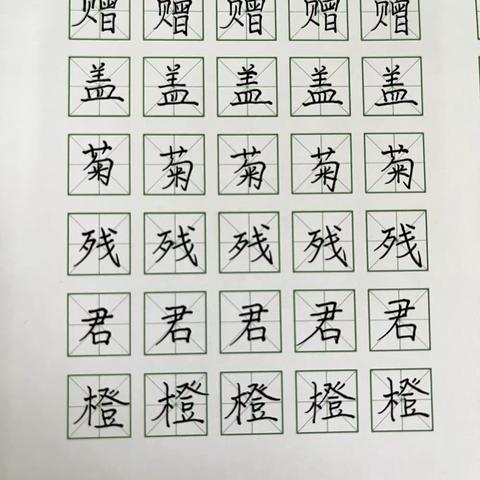 赠 赠 赠 赠 赠
盖 盖 盖 盖 盖
菊 菊 菊 菊 菊
残 残 残 残 残
君 君 君 君 君
橙 橙 橙 橙 橙